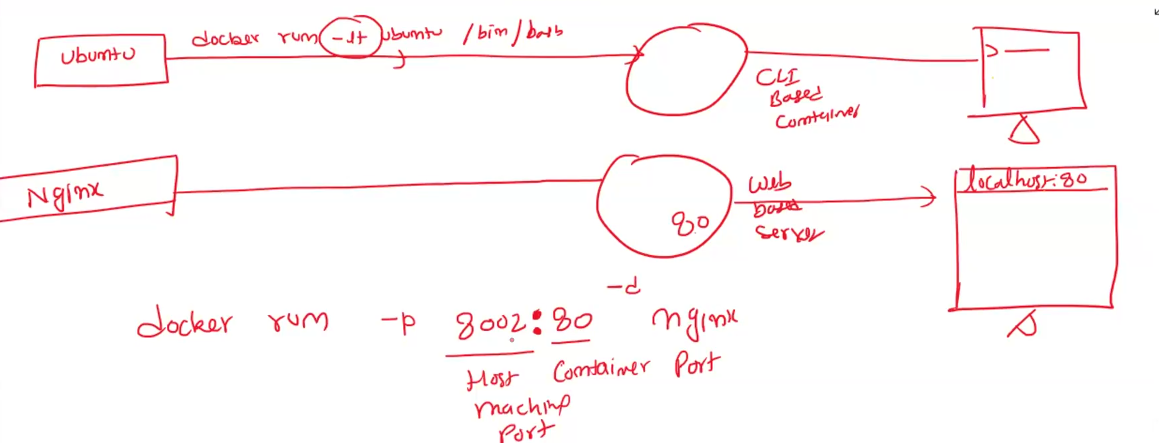 Ubuntu
docker run -it ubuntu /bin/bash
CLI
Based
Container
Nginx
80
Web
based
Server
localhost:80
-d
docker run -p 8002:80 nginx
Host Container Port
Machine
Port